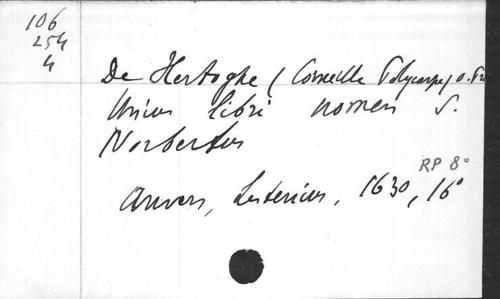 106
254
4
De Hertoghe (Corneille Polycarpe) o. Pr
Unius libri nomen S.
Norbertus
RP 8°
Anvers, Lesterius, 1630, 16°